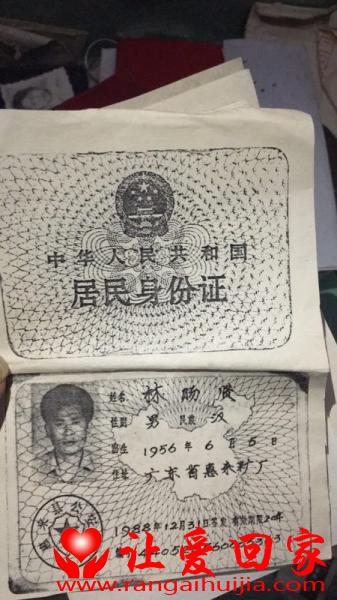 中华人民共和国
居民身份证
姓名 林
性别 男 民族 汉
出生 1956年6月5日
住址 广东省惠来
1988年12月31日签发 有效期限20年
让爱回家
www.rangaihuijia.com